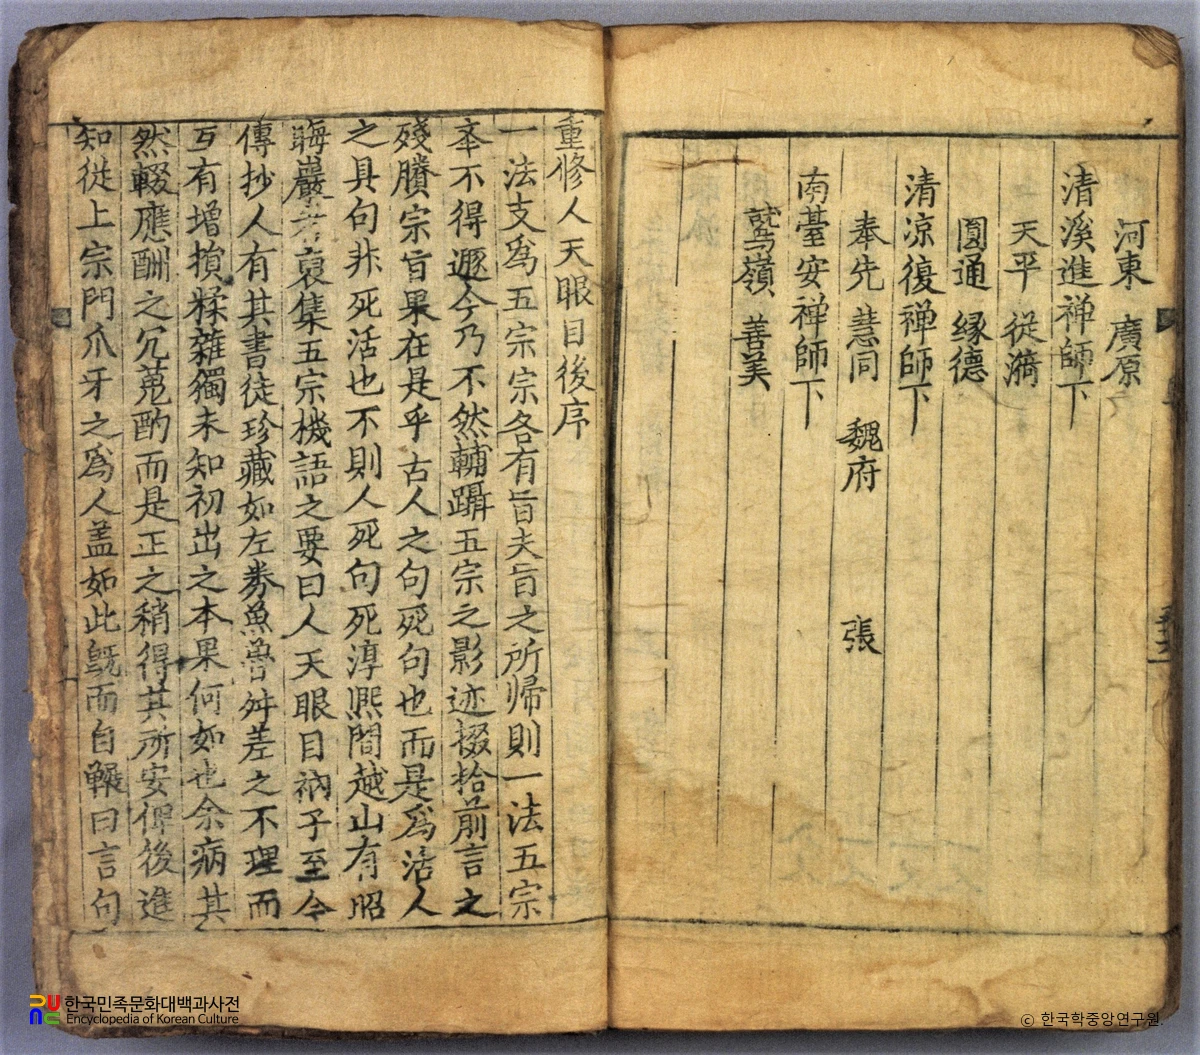 河東 廣原
清溪進禅師下
天平 從漪
圓通 縁德
清凉復禅師下
奉先 慧同 魏府 張
南臺安禅師下
鷲嶺 善美
重修人天眼目後序
一法支爲五宗宗各有旨夫旨之所㱕則一法五宗
本不得遯今乃不然輔躡五宗之影迹掇拾前言之
殘賸宗旨果在是乎古人之句死句也而是爲活人
之具句非死活也不則人死句死淳熈間越山有昭
晦巖者裒集五宗機語之要曰人天眼目衲子至今
傳抄人有其書徒珍藏如左券魚魯舛差之不理而
互有增損糅雜獨未知初出之本果何如也余病其
然輟應酬之冗蒐酌而是正之稍得其所安俾後進
知從上宗門爪牙之爲人盖如此旣而自囅曰言句
한국민족문화대백과사전
Encyclopedia of Korean Culture
ⓒ 한국학중앙연구원.